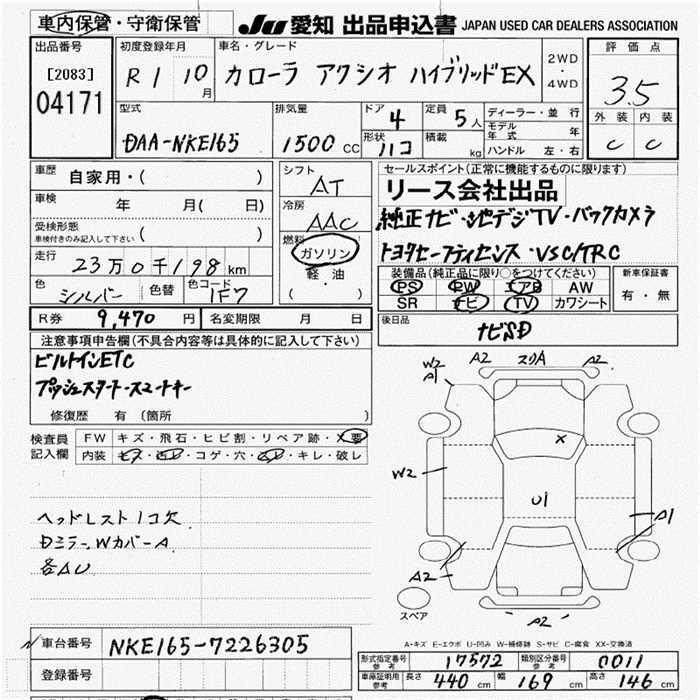 車内保管・守衛保管
JU 愛知 出品申込書 JAPAN USED CAR DEALERS ASSOCIATION
出品番号
[2083]
04171
初度登録年月
R1 10月
車名・グレード
カローラ アクシオ ハイブリッドEX
2WD・4WD
評価点
3.5
外装 内装
C C
型式
DAA-NKE165
排気量
1500 CC
ドア 4
形状 ハコ
定員 5人
積載 kg
ディーラー・並行
モデル年式 年
ハンドル 左・右
車歴 自家用・( )
車検 年 月( 日)
受検形態 ( )
車検付きのみ記入して下さい
走行 23万0千198km
色 シルバー 色替 色コード 1F7
シフト AT
冷房 AAC
燃料 ガソリン
軽油
( )
セールスポイント(正常に機能するものに限ります)
リース会社出品
純正ナビ・地デジTV・バックカメラ
トヨタセーフティセンス・VSC/TRC
装備品(純正品に限り○をつけてください)
PS PW エアB AW
SR ナビ TV カワシート
新車保証書
有・無
R券 9,470円 名変期限 月 日
後日品
ナビSD
注意事項申告欄(不具合内容等は具体的に記入して下さい)
ビルトインETC
プッシュスタート・スマートキー
修復歴 有(箇所 )
検査員記入欄
FW キズ・飛石・ヒビ割・リペア跡・X要
内装 キズ・汚レ・コゲ・穴・キレ・破レ
ヘッドレスト1コ欠
Dミラー,WカバーA
各AU
W2
A1
A2
スリA
A2
X
W2
U1
A1
A2
A2
スペア
A-キズ E-エクボ U-凹み W-補修跡 S-サビ C-腐食 XX-交換済
車台番号 NKE165-7226305
登録番号
型式指定番号 参考 17572
類別区分番号 参考 0011
車庫証明用 参考 長さ 440cm 幅 169cm 高さ 146cm